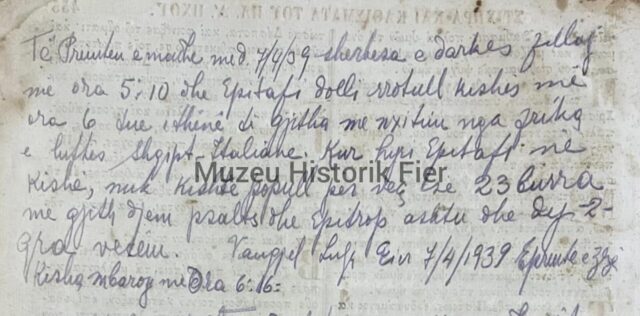 Të Premten e madhe më d. 7/4/39 sherbesa e darkës filloj
me ora 5:10 dhe Epitafi dolli rrotull kishës më
ora 6 due ithënë di gjitha me nxitim nga frika
e luftës Shqipt. Italiane. Kur hyri Epitafi në
kishë, nuk kishte popull për veç se 23 burra
me gjith djem psaltë dhe Epitrop ashtu dhe dy-2-
gra vetëm. Vangjel Eier 7/4/1939 Epremte e zezë
Kisha mbaroj me Ora 6:16=
Muzeu Historik Fier